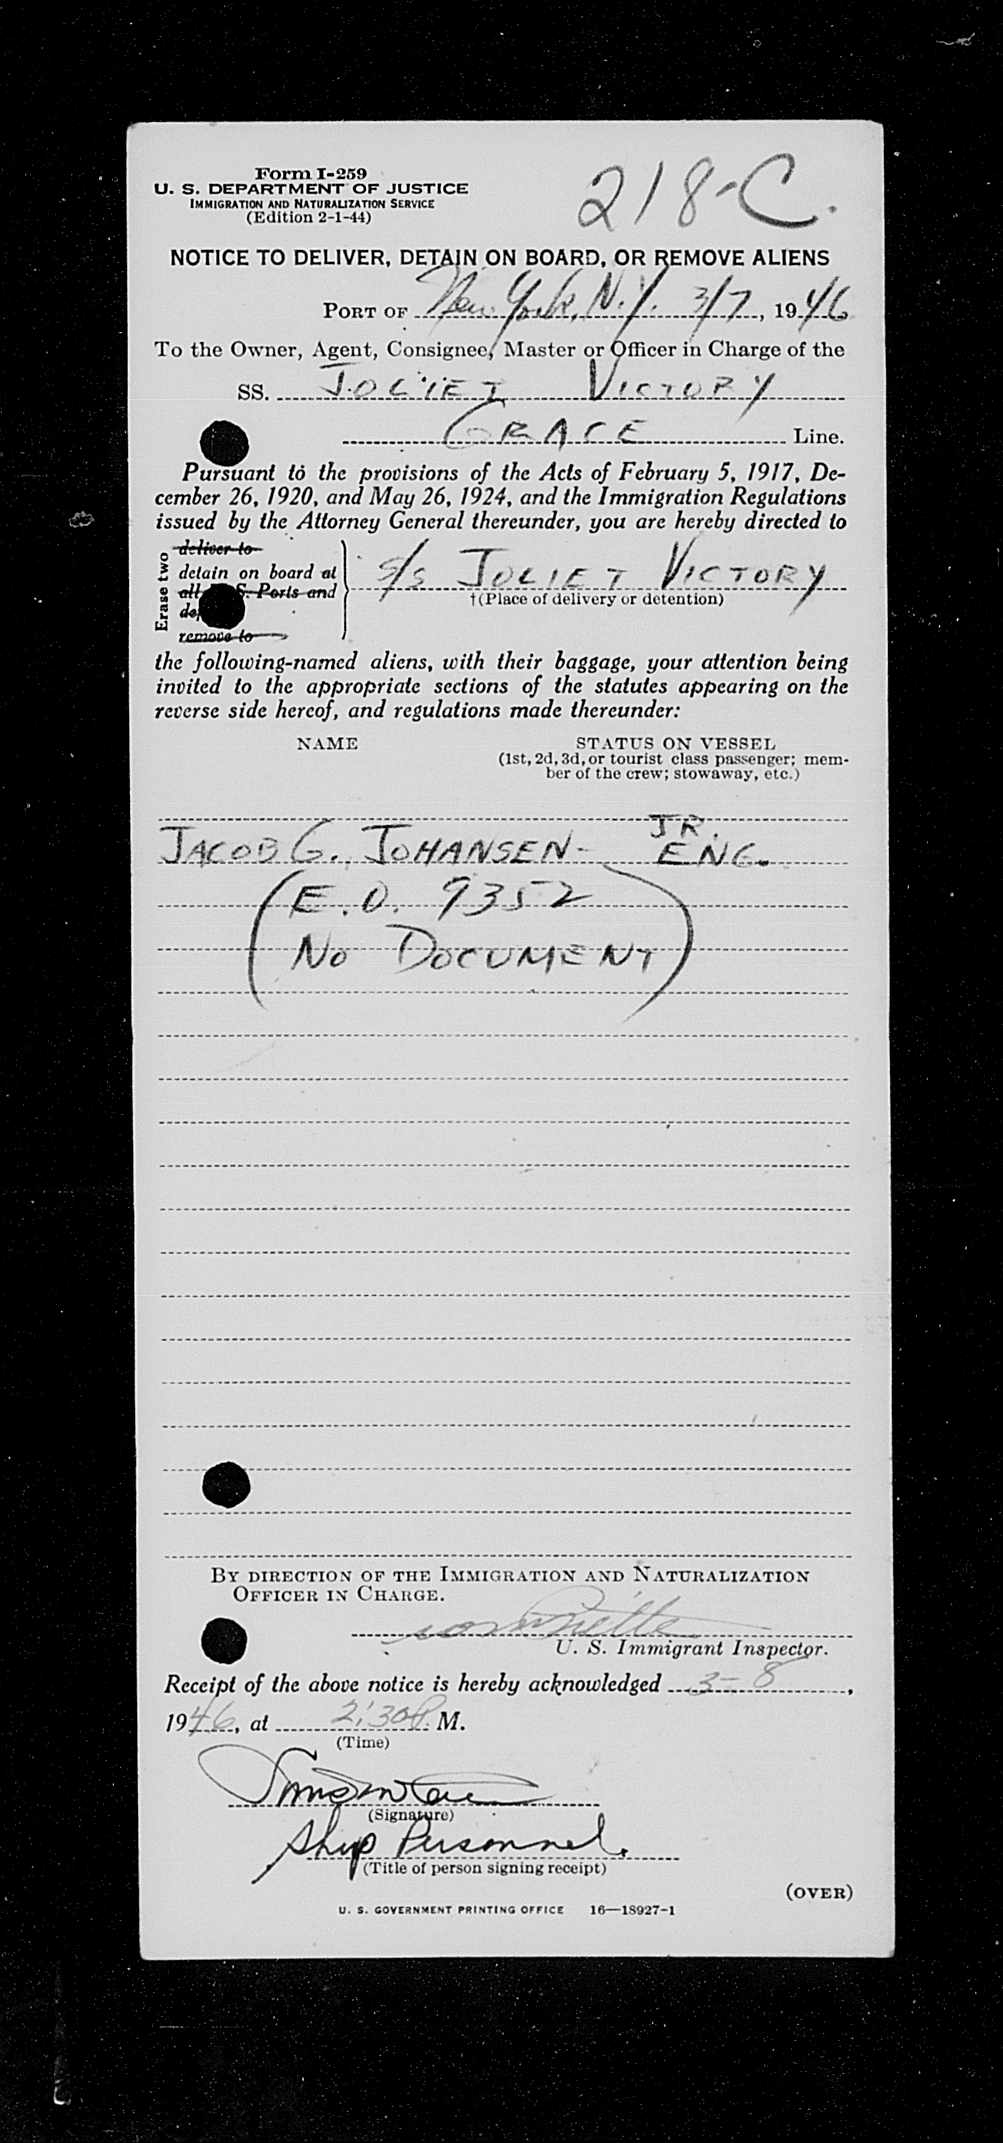 Form I-259
U. S. DEPARTMENT OF JUSTICE
IMMIGRATION AND NATURALIZATION SERVICE
(Edition 2-1-44)
218-C.
NOTICE TO DELIVER, DETAIN ON BOARD, OR REMOVE ALIENS
PORT OF New York, N.Y. 3/7, 1946
To the Owner, Agent, Consignee, Master or Officer in Charge of the
SS. JOLIET VICTORY
GRACE Line.
Pursuant to the provisions of the Acts of February 5, 1917, De-
cember 26, 1920, and May 26, 1924, and the Immigration Regulations
issued by the Attorney General thereunder, you are hereby directed to
Erase two
deliver to
detain on board at
all S. Ports and
remove to
S/S JOLIET VICTORY
†(Place of delivery or detention)
the following-named aliens, with their baggage, your attention being
invited to the appropriate sections of the statutes appearing on the
reverse side hereof, and regulations made thereunder:
NAME STATUS ON VESSEL
(1st, 2d, 3d, or tourist class passenger; mem-
ber of the crew; stowaway, etc.)
JACOB G. JOHANSEN- JR. ENG.
(E.O. 9352
NO DOCUMENT)
BY DIRECTION OF THE IMMIGRATION AND NATURALIZATION
OFFICER IN CHARGE.
U. S. Immigrant Inspector.
Receipt of the above notice is hereby acknowledged 3-8,
1946, at 2:30P. M.
(Time)
(Signature)
Ship Personnel.
(Title of person signing receipt)
(OVER)
U. S. GOVERNMENT PRINTING OFFICE 16—18927-1